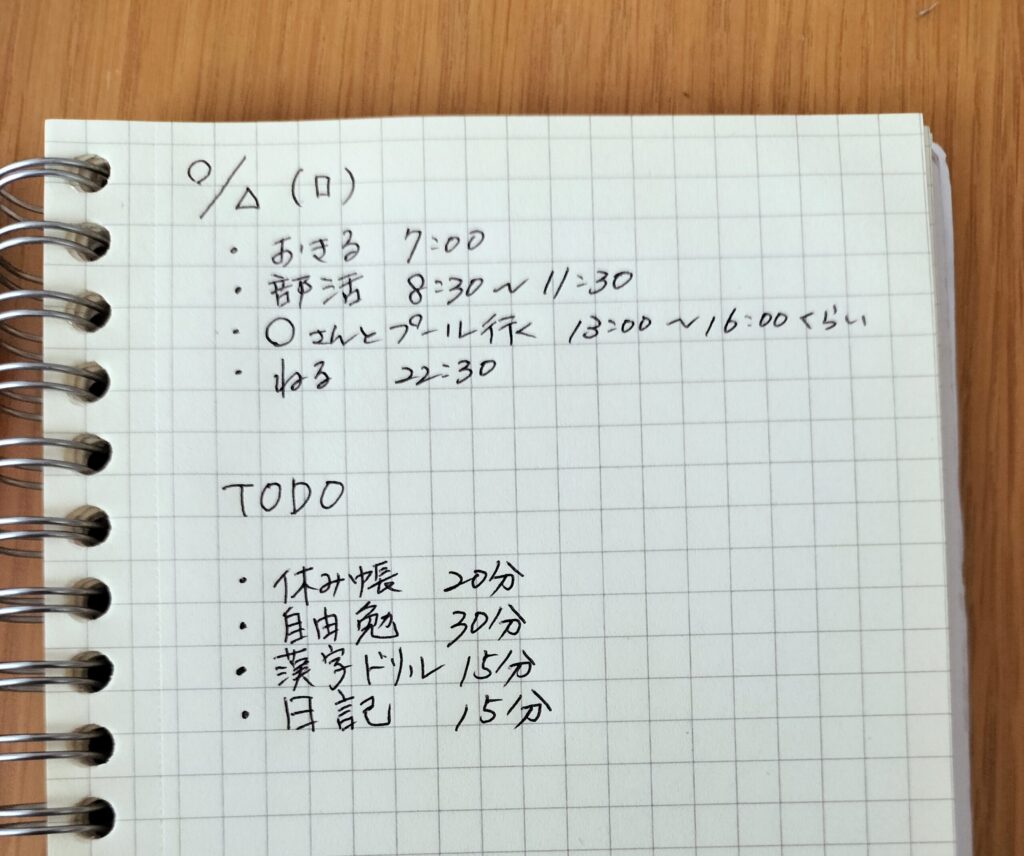 ○/△ (口)
・ おきる 7:00
・ 部活 8:30～11:30
・ ○さんとプール行く 13:00～16:00くらい
・ ねる 22:30
TODO
・ 休み帳 20分
・ 自由勉 30分
・ 漢字ドリル 15分
・ 日記 15分